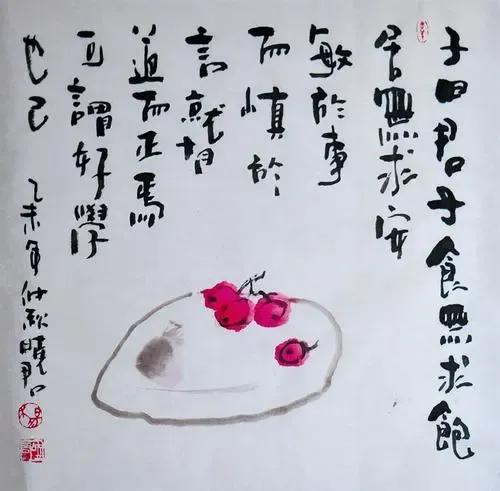 子曰君子食無求飽
居無求安
敏於事
而慎於
言就有
道而正焉
可謂好學
也已
乙未年仲秋曉君